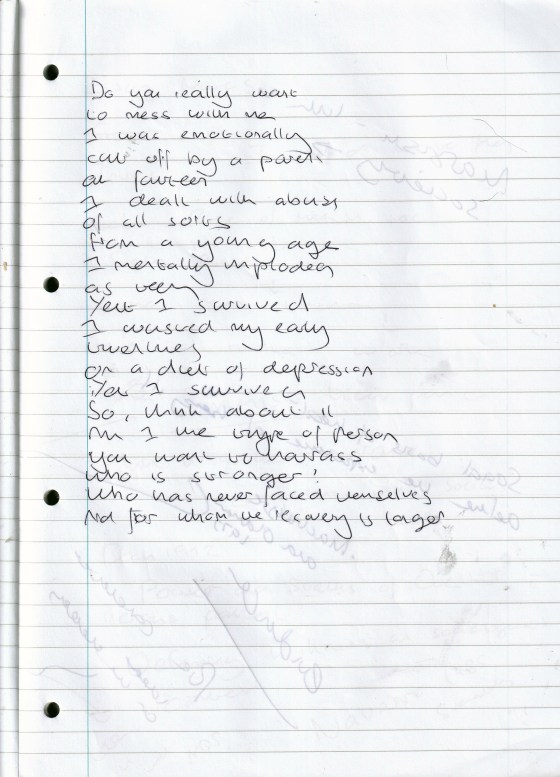 Do you really want
to mess with me
I was emotionally
cut off by a parent
at fourteen
I dealt with abuse
of all sorts
from a young age
I mentally imploded
as
Yet I survived
I wasted my early
twenties
on a diet of depression
Yet I survived
So, think about it
Am I the type of person
you want to harrass
Who is stronger?
Who has never faced themselves
And for whom the recovery is longer